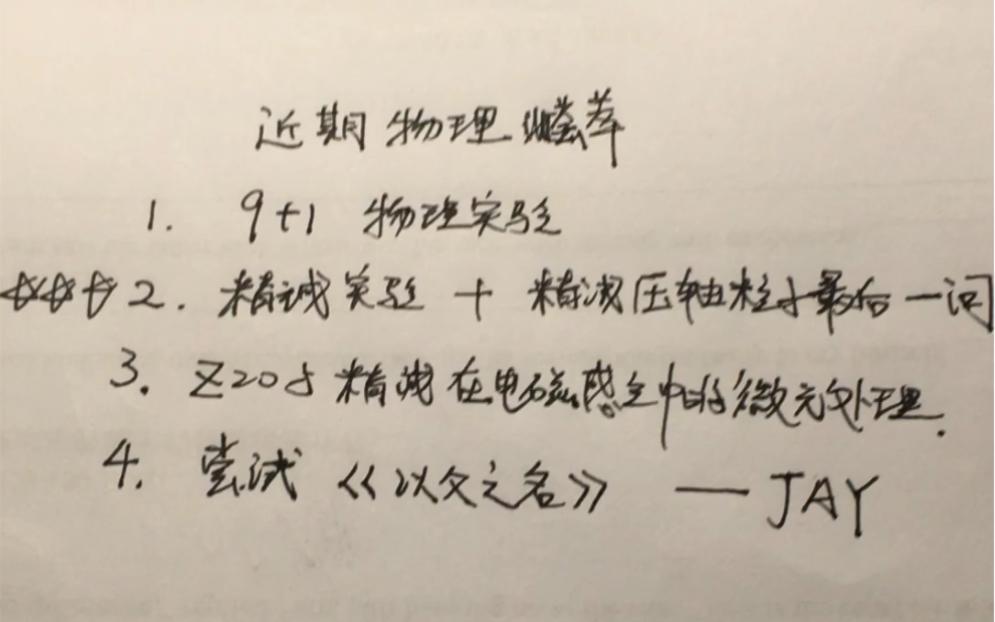 近期物理荟萃
1. 9+1 物理实验
2. 精诚实验 + 精诚压轴粒子最后一问
3. Z20 精诚在电磁感应中的微元处理.
4. 尝试《以父之名》 — JAY